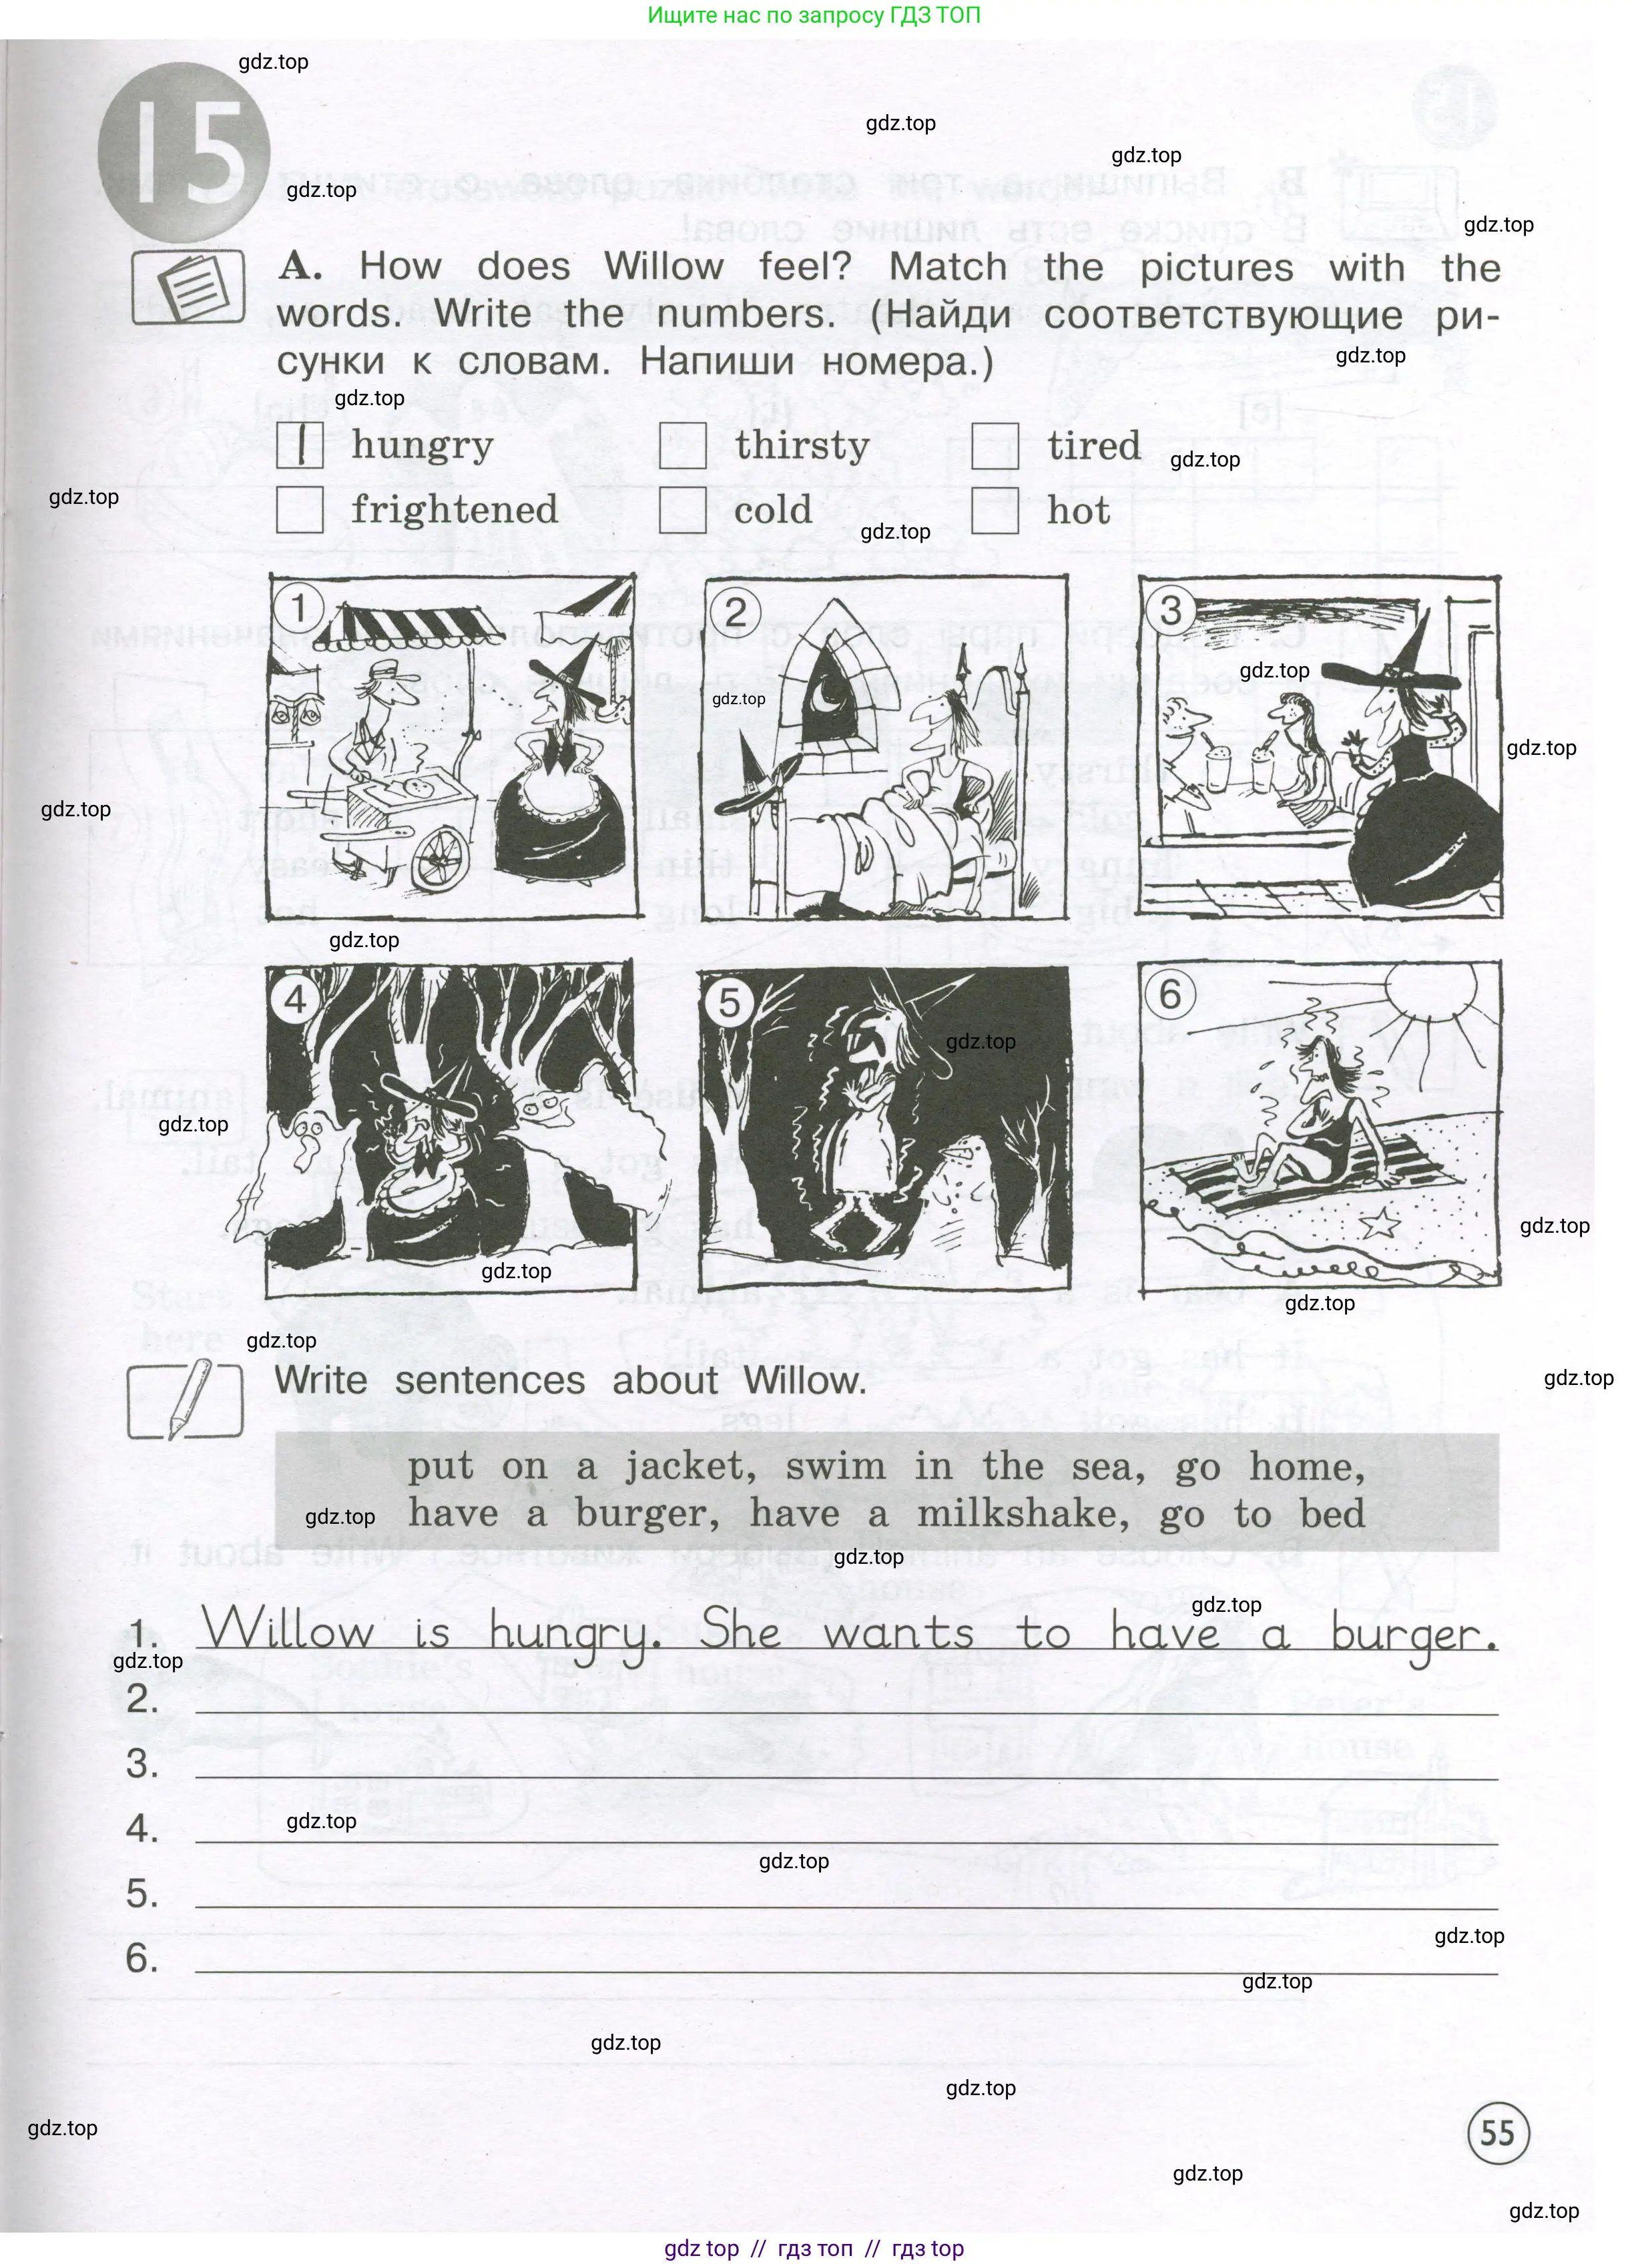 Ищите нас по запросу ГДЗ ТОП
gdz.top
15
gdz.top
gdz.top
gdz.top
gdz.top
A. How does Willow feel? Match the pictures with the
words. Write the numbers. (Найди соответствующие ри-
сунки к словам. Напиши номера.)
gdz.top
gdz.top
1 hungry thirsty tired
gdz.top
gdz.top
frightened cold hot
gdz.top
1 2 3
gdz.top
gdz.top
gdz.top
gdz.top
gdz.top
4 5 6
gdz.top
gdz.top
gdz.top
gdz.top
gdz.top
gdz.top
gdz.top
Write sentences about Willow.
put on a jacket, swim in the sea, go home,
gdz.top have a burger, have a milkshake, go to bed
gdz.top
gdz.top
1. Willow is hungry. She wants to have a burger.
gdz.top
2.
3.
4.
gdz.top
gdz.top
5.
gdz.top
6.
gdz.top
gdz.top
gdz.top
gdz.top
55
gdz.top
gdz.top
gdz top // гдз топ // гдз top